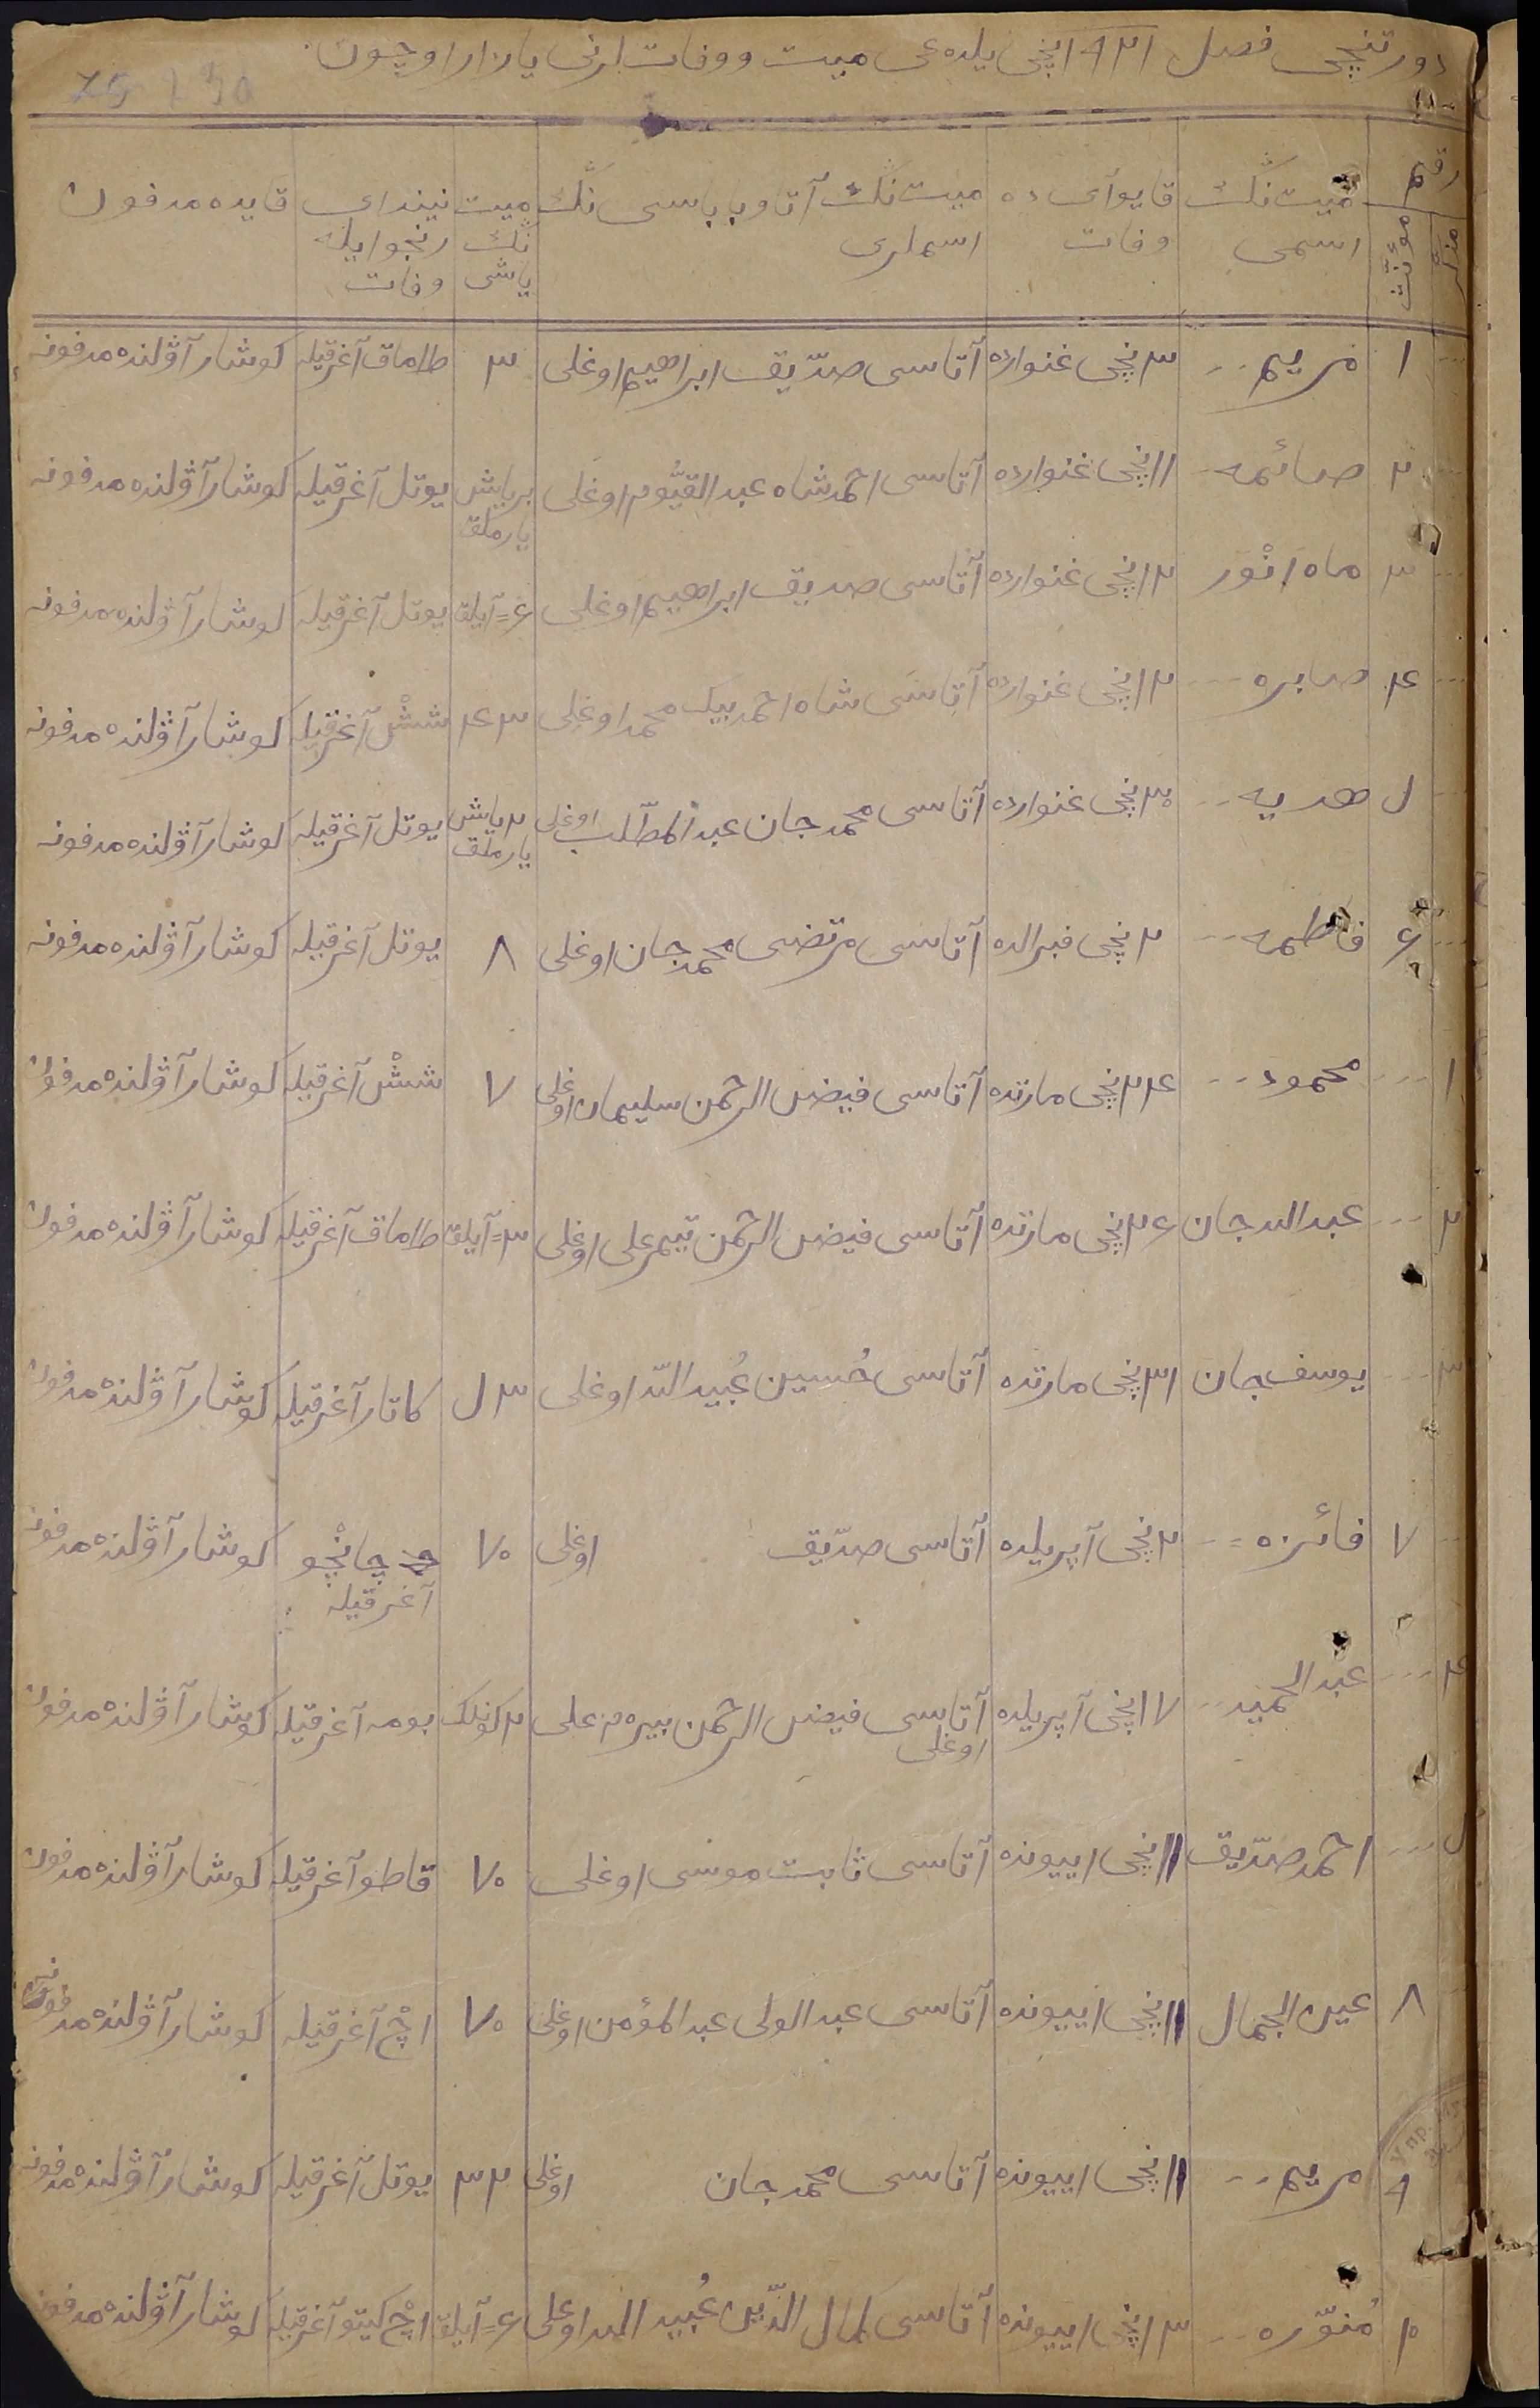 دورتنچی فصل ۱۹۲۱ نچی یلده‌غی میت ووفات‌لرنی یازار اوچون
رقم
مذکر
مؤنث
میت ننڭ اسمی
قایو آی ده وفات
میت ننڭ آتا و باباسی ننڭ اسملری
میت ننڭ یاشی
نیندای رنجو ایله وفات
قایده مدفون
۱ مریم ۳نچی غنوارده آتاسی صدّیق ابراهیم اوغلی ۳ طاماق آغرقیله کوشار آۋلنده مدفونه
۲ صائمه ۱۱نچی غنوارده آتاسی احمدشاه عبدالقیُّوم اوغلی بر یاش یارملق یوتل آغرقیله کوشار آۋلنده مدفونه
۳ ماه انْوَر ۱۲نچی غنوارده آتاسی صدیق ابراهیم اوغلی ۶= آیلق یوتل آغرقیله کوشار آۋلنده مدفونه
۴ صابره ۱۲نچی غنوارده آتاسی شاه احمد بیک محمد اوغلی ۴۳ شش آغرقیله کوشار آۋلنده مدفونه
۵ هدیه ۳۰نچی غنوارده آتاسی محمدجان عبدالمطّلب اوغلی ۲ یاش یارملق یوتل آغرقیله کوشار آۋلنده مدفونه
۶ فاطمه ۲نچی فبرالده آتاسی مرتضی محمدجان اوغلی ۸ یوتل آغرقیله کوشار آۋلنده مدفونه
۱ محمود ۲۴نچی مارتده آتاسی فیض الرحمن سلیمان اوغلی ۷ شش آغرقیله کوشار آۋلنده مدفون
۲ عبدالله جان ۲۶نچی مارتده آتاسی فیض الرحمن تیمرعلی اوغلی ۳= آیلق طاماق آغرقیله کوشار آۋلنده مدفون
۳ یوسف جان ۳۱نچی مارتده آتاسی حُسین عُبیدالله اوغلی ۵۳ کاتار آغرقیله کوشار آۋلنده مدفون
۷ فائزه ۲نچی آپریلده آتاسی صدّیق اوغلی ۷۰ چانچو آغرقیله کوشار آۋلنده مدفونه
۴ عبدالحمید ۱۷نچی آپریلده آتاسی فیض الرحمن بیرم علی اوغلی ۲ کونلک بومه آغرقیله کوشار آۋلنده مدفون
۵ احمد صدّیق ۱۱نچی اییونده آتاسی ثابت موسی اوغلی ۷۰ قاطو آغرقیله کوشار آۋلنده مدفون
۸ عین الجمال ۱۱نچی اییونده آتاسی عبدالولی عبدالمؤمن اوغلی ۷۰ اچ آغرقیله کوشار آۋلنده مدفونه
۹ مریم ۱۱نچی اییونده آتاسی محمدجان اوغلی ۳۲ یوتل آغرقیله کوشار آۋلنده مدفونه
۱۰ مُنوّره ۱۳نچی اییونده آتاسی کمال الدّین عُبیدالله اوغلی ۶= آیلق اچ کیتو آغرقیله کوشار آۋلنده مدفونه